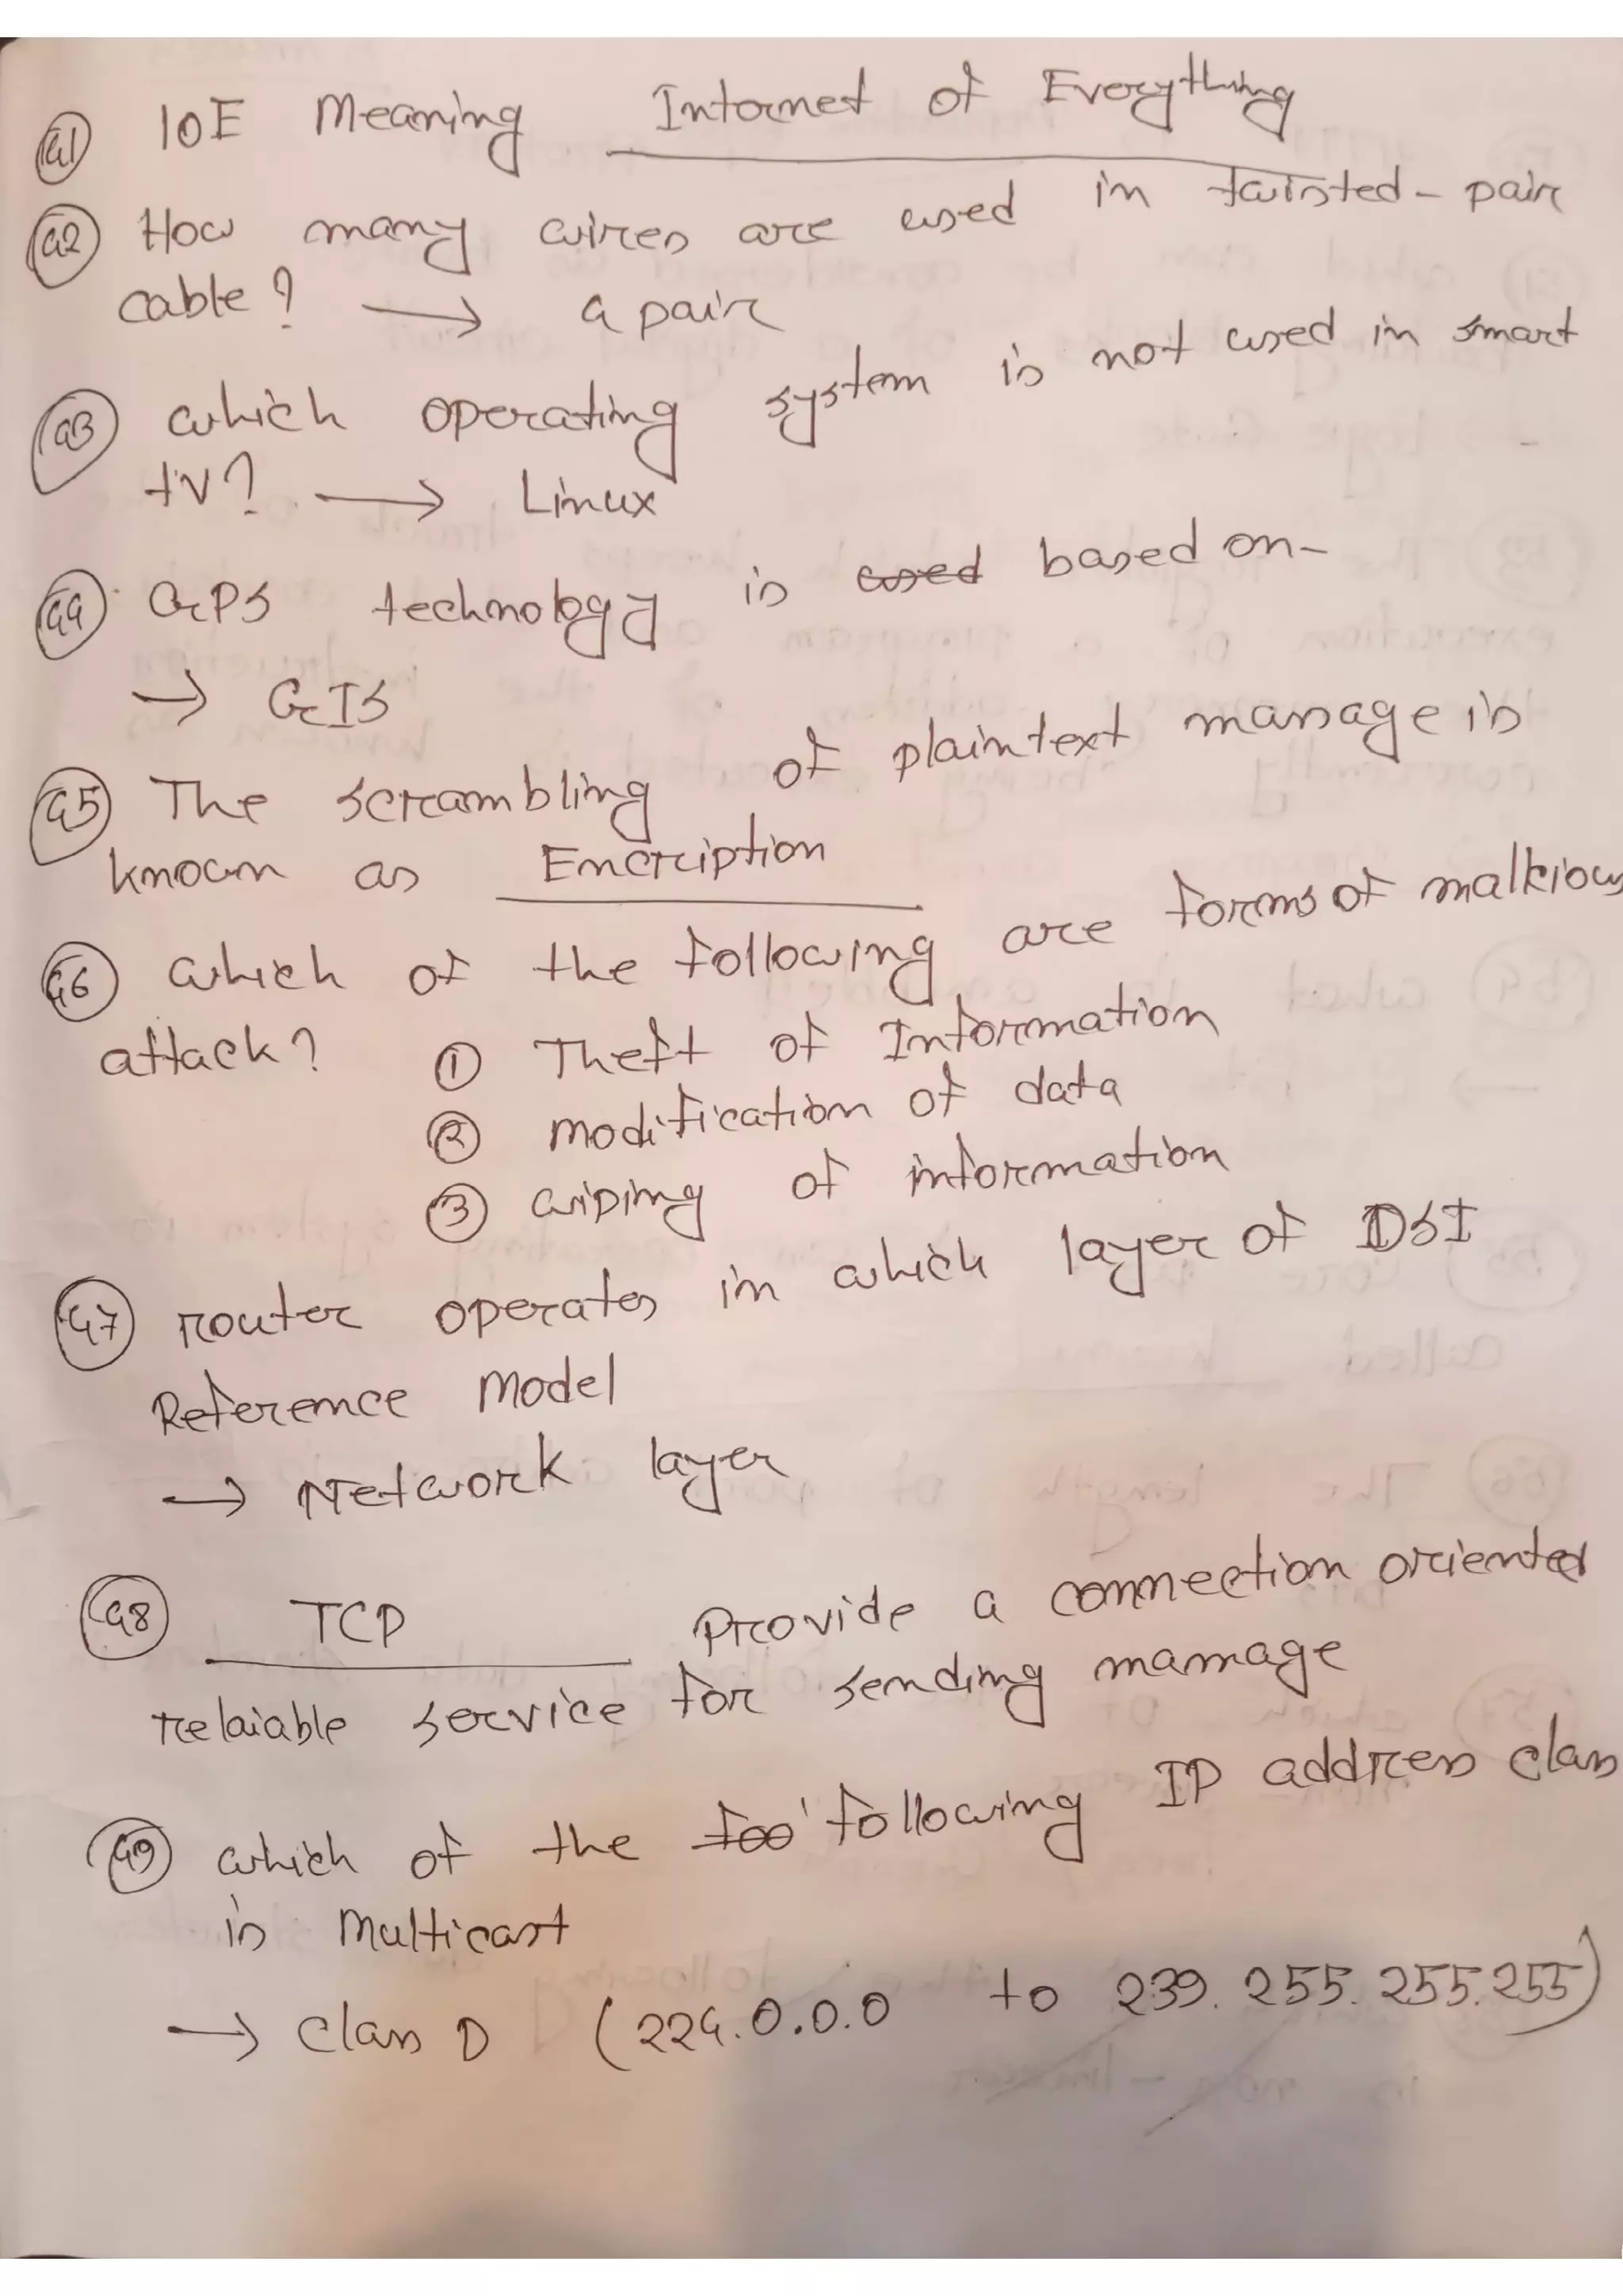 41 IOE Meaning Internet of Everything
42 How many wires are used in twisted-pair
cable? → 4 pair
43 which operating system is not used in smart
tv? → Linux
44 GPS technology is used based on-
→ GIS
45 The scrambling of plaintext massage is
known as Encription
46 which of the following are forms of malkious
attack? ① Theft of Information
② modification of data
③ wiping of information
47 router operates in which layer of OSI
Reference Model
→ Network layer
48 TCP Provide a connection oriented
relaiable service for sending massage
49 which of the foo following IP address class
is Multicast
→ class D (224.0.0.0 to 239.255.255.255)